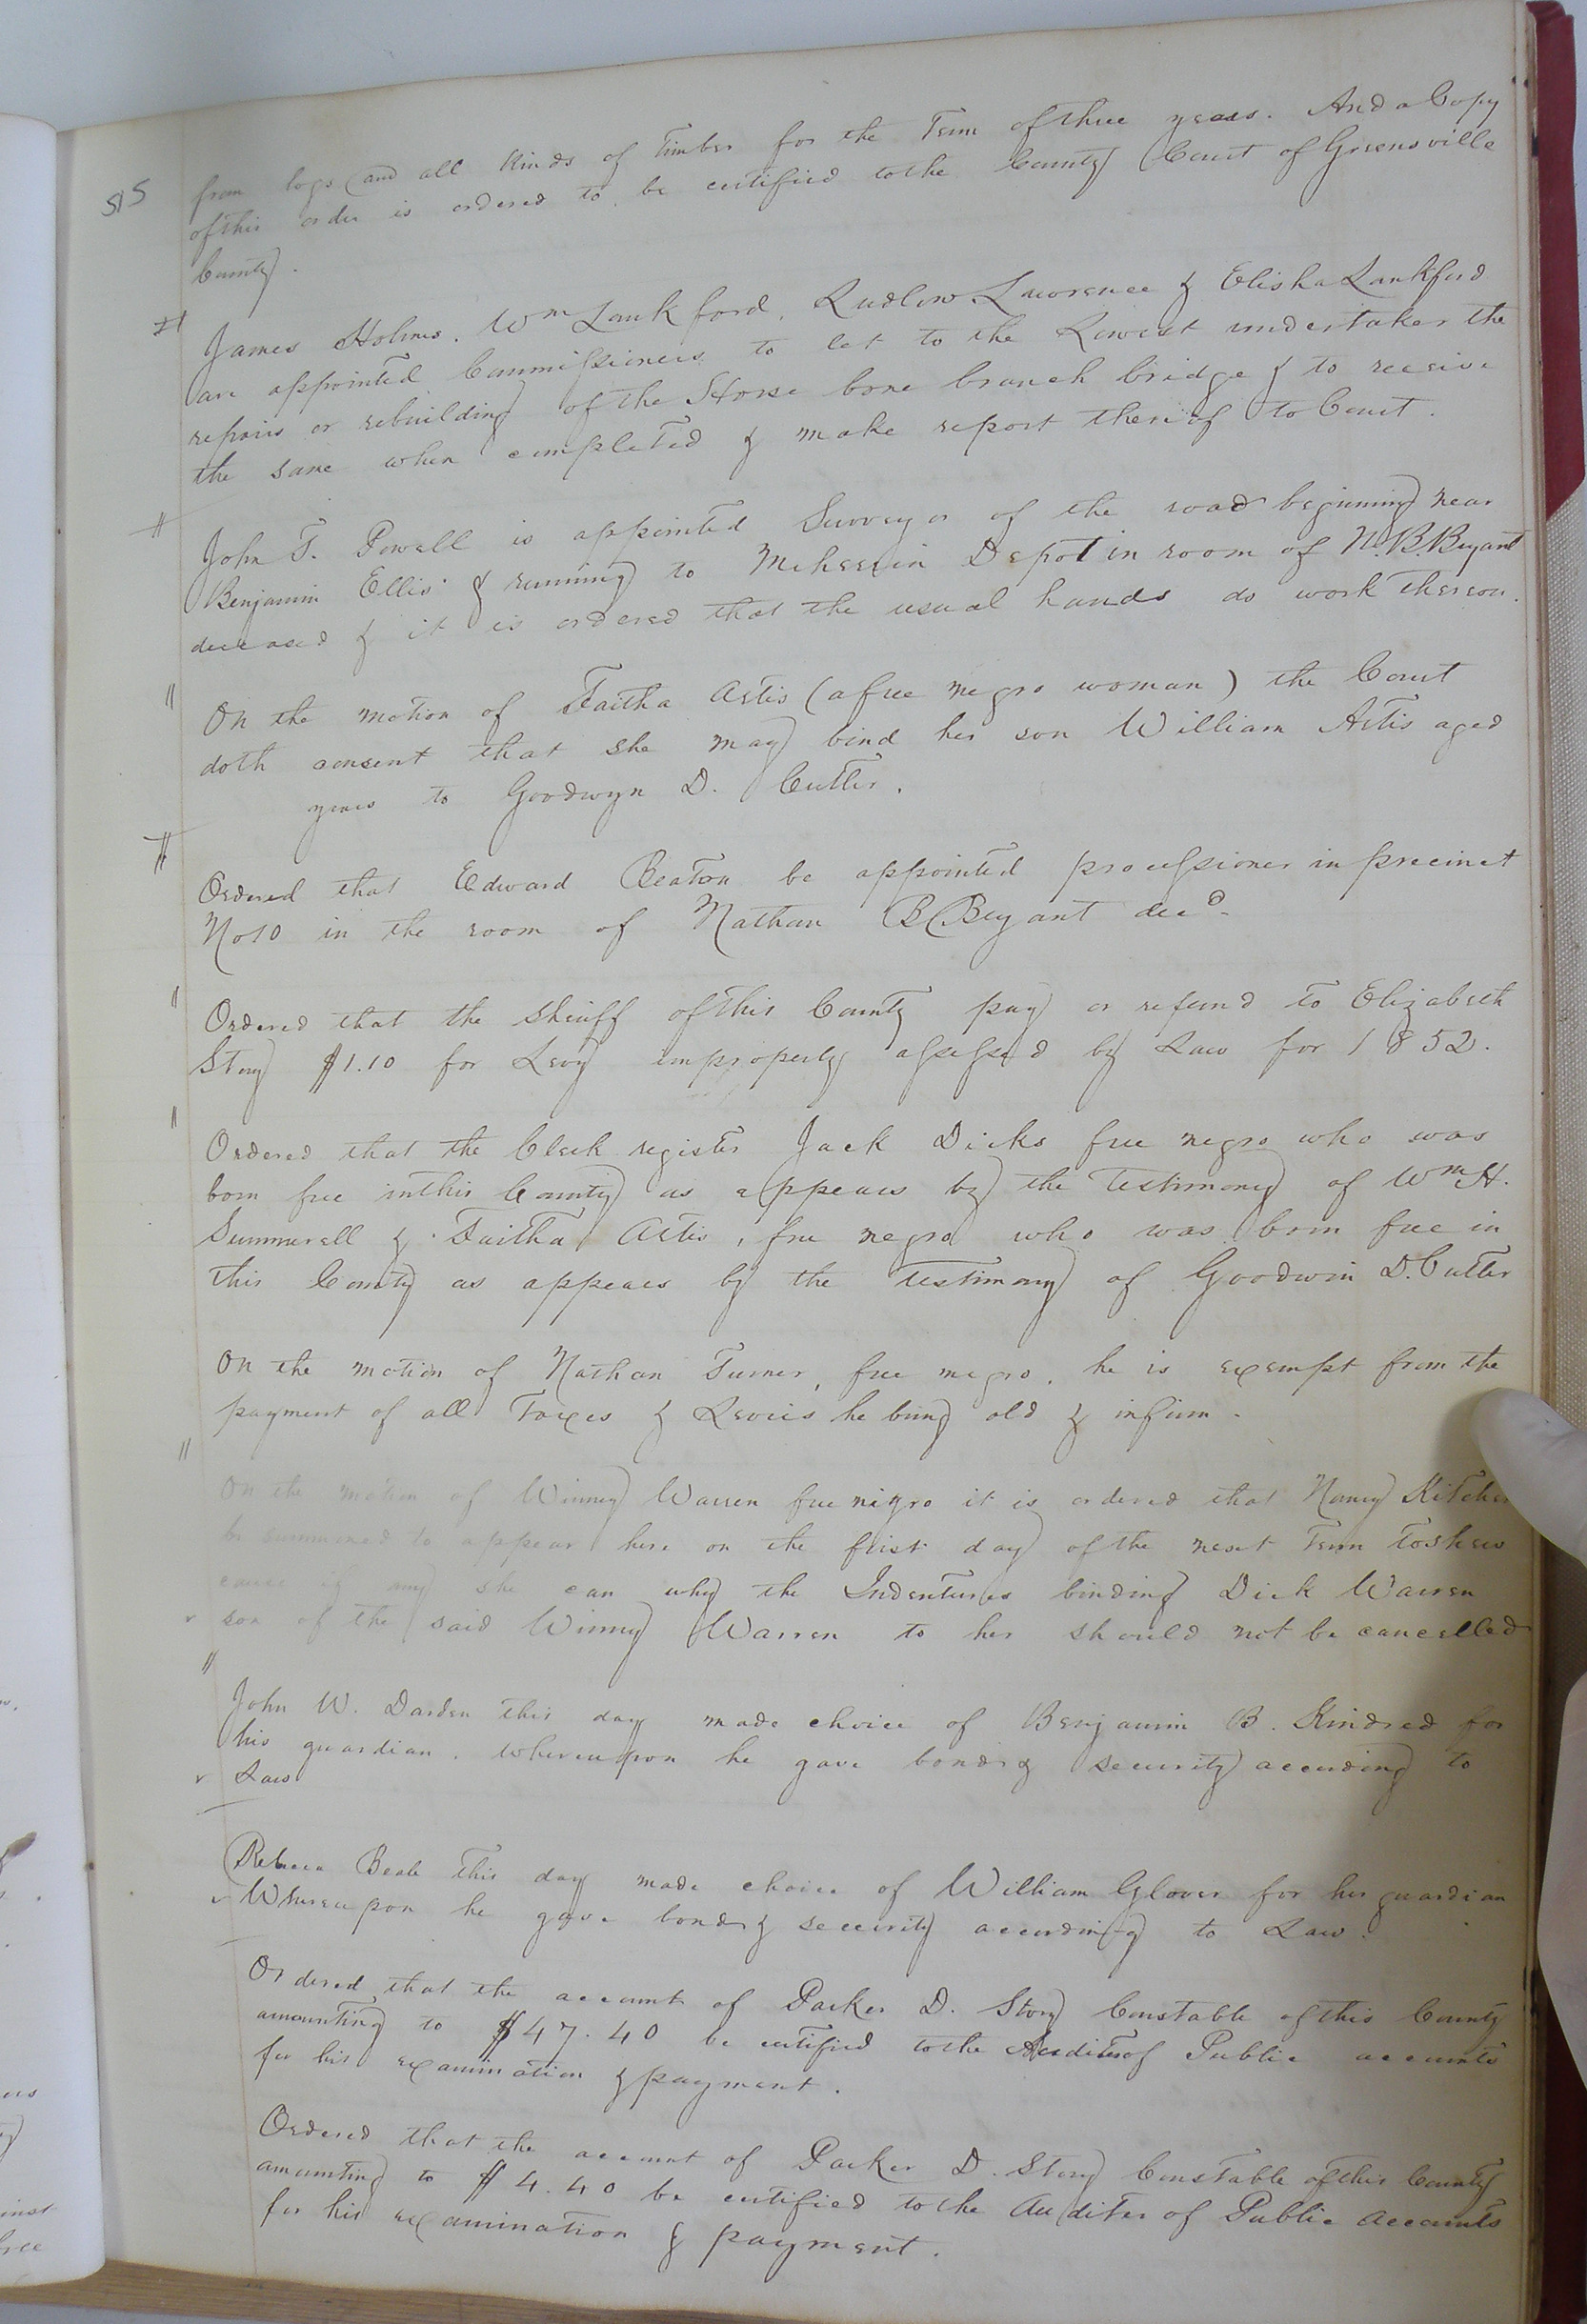 515
from logs and all Kinds of Timber for the Term of three years. And a Copy
of this order is ordered to be certified to the County Court of Greensville
County.
James Holmes, Wm Lankford, Ludlow Lawrence & Elisha Lankford
are appointed Commissioners to let to the Lowest undertaker the
repairs or rebuilding of the Horse bone branch bridge & to receive
the same when completed & make report thereof to Court.
John T. Powell is appointed Surveyor of the road beginning near
Benjamin Ellis' & running to Meherrin Depot in room of N. B. Bryant
deceased & it is ordered that the usual hands do work thereon.
On the motion of Faitha Artis (a free negro woman) the Court
doth consent that she may bind her son William Artis aged
years to Goodwyn D. Cutler.
Ordered that Edward Beaton be appointed processioner in precinct
No 10 in the room of Nathan B Bryant decd.
Ordered that the Sheriff of this County pay or refund to Elizabeth
Story $1.10 for Levy improperly assessed by Law for 1852.
Ordered that the Clerk register Jack Dicks free negro who was
born free in this County as appears by the Testimony of Wm H.
Summerell & Faitha Artis, free negro who was born free in
this County as appears by the Testimony of Goodwin D. Cutler
On the motion of Nathan Turner, free negro, he is exempt from the
payment of all Taxes & Levies he being old & infirm.
On the motion of Winney Warren free nigro it is ordered that Nancy Kitchen
be summoned to appear here on the first day of the next Term to shew
cause if any she can why the Indentures binding Dick Warren
son of the said Winney Warren to her should not be cancelled
John W. Darden this day made choice of Benjamin B. Kindred for
his guardian. whereupon he gave bond & security according to
Law
Rebecca Beale this day made choice of William Glover for her guardian
Whereupon he gave bond & security according to Law.
Ordered that the account of Parker D. Story Constable of this County
amounting to $47.40 be certified to the Auditor of Public accounts
for his examination & payment.
Ordered that the account of Parker D. Story Constable of this County
amounting to $4.40 be certified to the Auditer of Public Accounts
for his examination & payment.